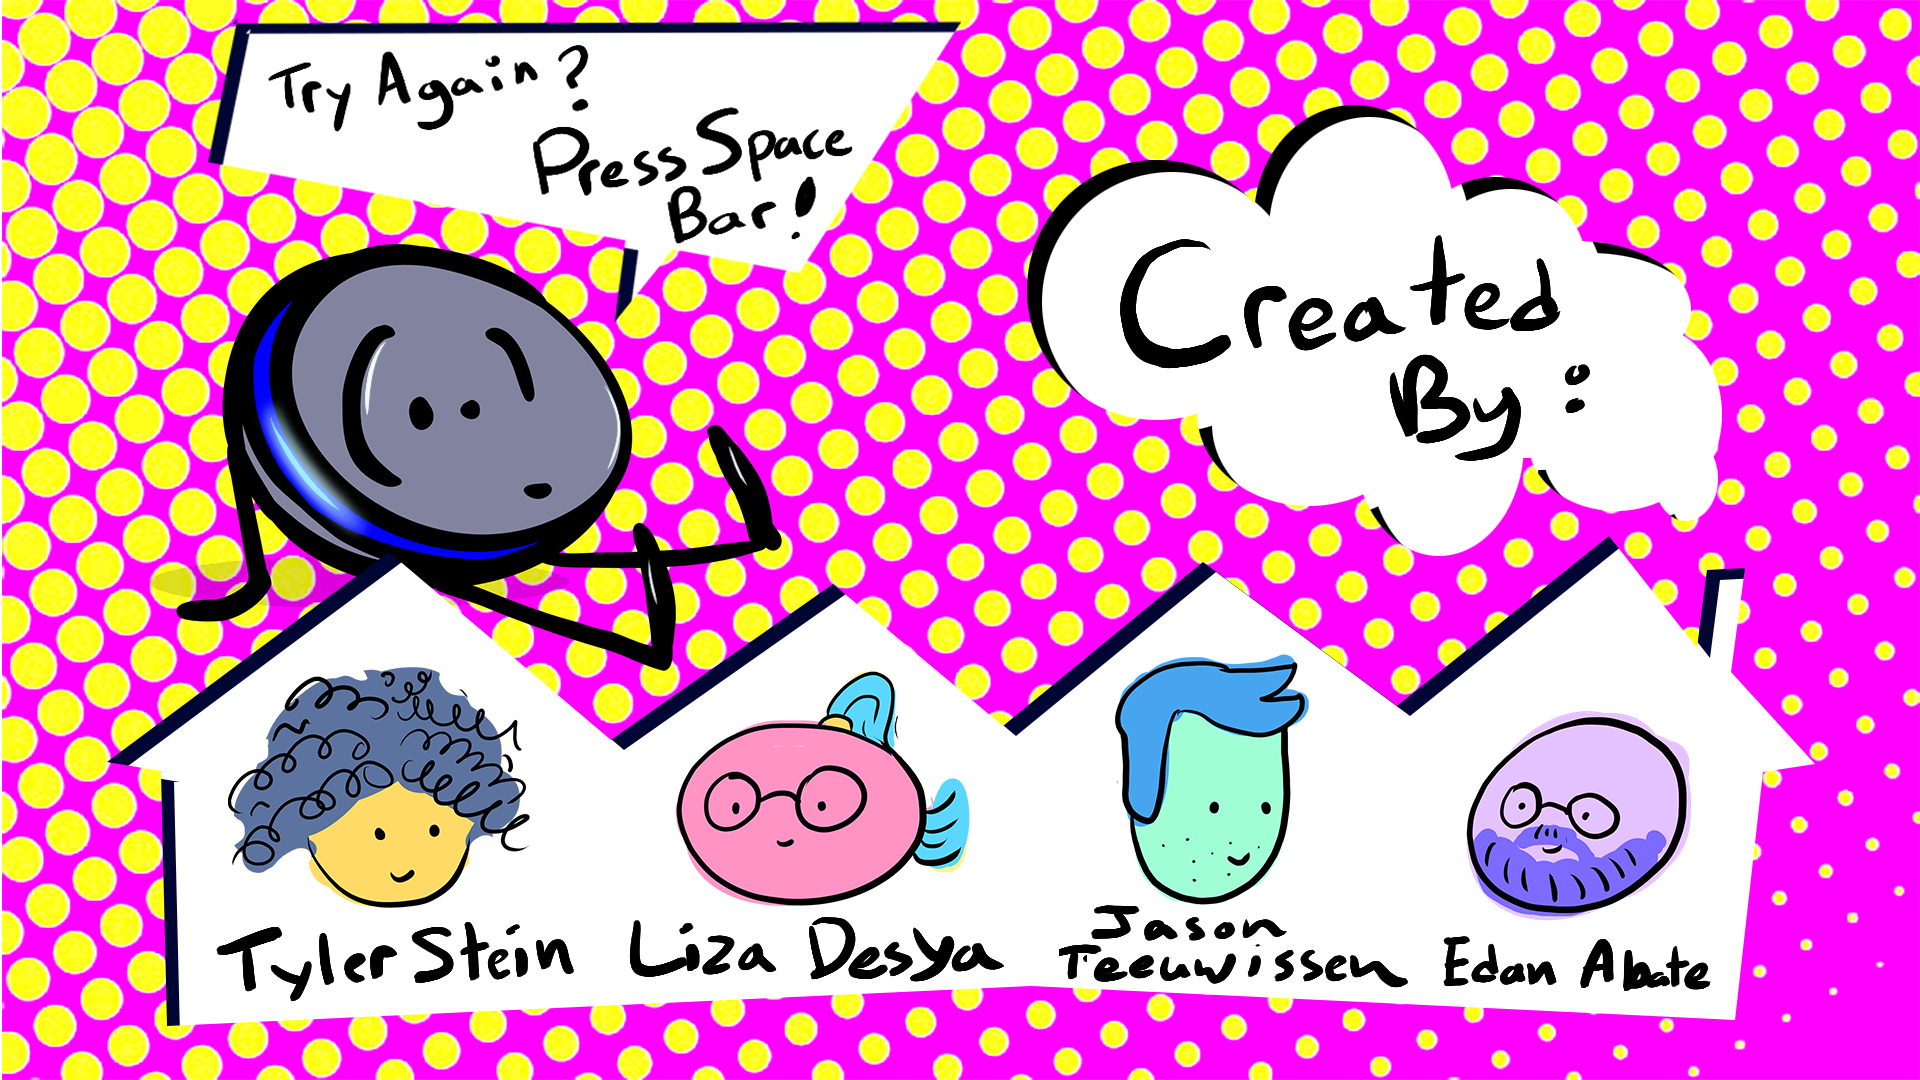 Try Again?
Press Space
Bar!
Created
By:
Tyler Stein
Liza Desya
Jason
Teeuwissen
Edan Abate